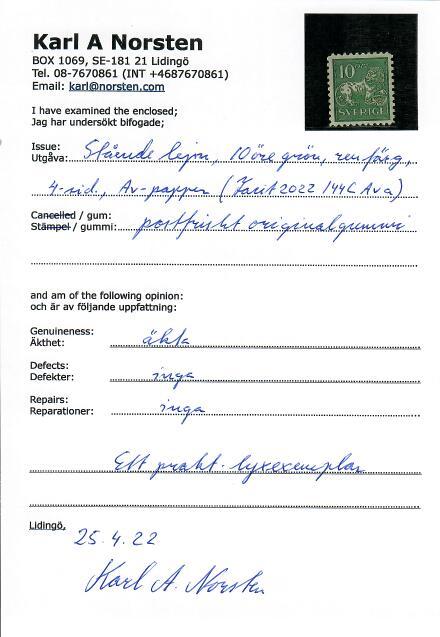 Karl A Norsten
BOX 1069, SE-181 21 Lidingö
Tel. 08-7670861 (INT +4687670861)
Email: karl@norsten.com
10
SVERIGE
I have examined the enclosed;
Jag har undersökt bifogade;
Issue:
Utgåva: Stående lejon, 10 öre grön, ren färg,
4-sid., Av-papper (Facit 2022 144C Ava)
Cancelled / gum:
Stämpel / gummi: postfriskt originalgummi
and am of the following opinion:
och är av följande uppfattning:
Genuineness:
Äkthet: äkta
Defects:
Defekter: inga
Repairs:
Reparationer: inga
Ett prakt-lyxexemplar
Lidingö,
25.4.22
Karl A. Norsten